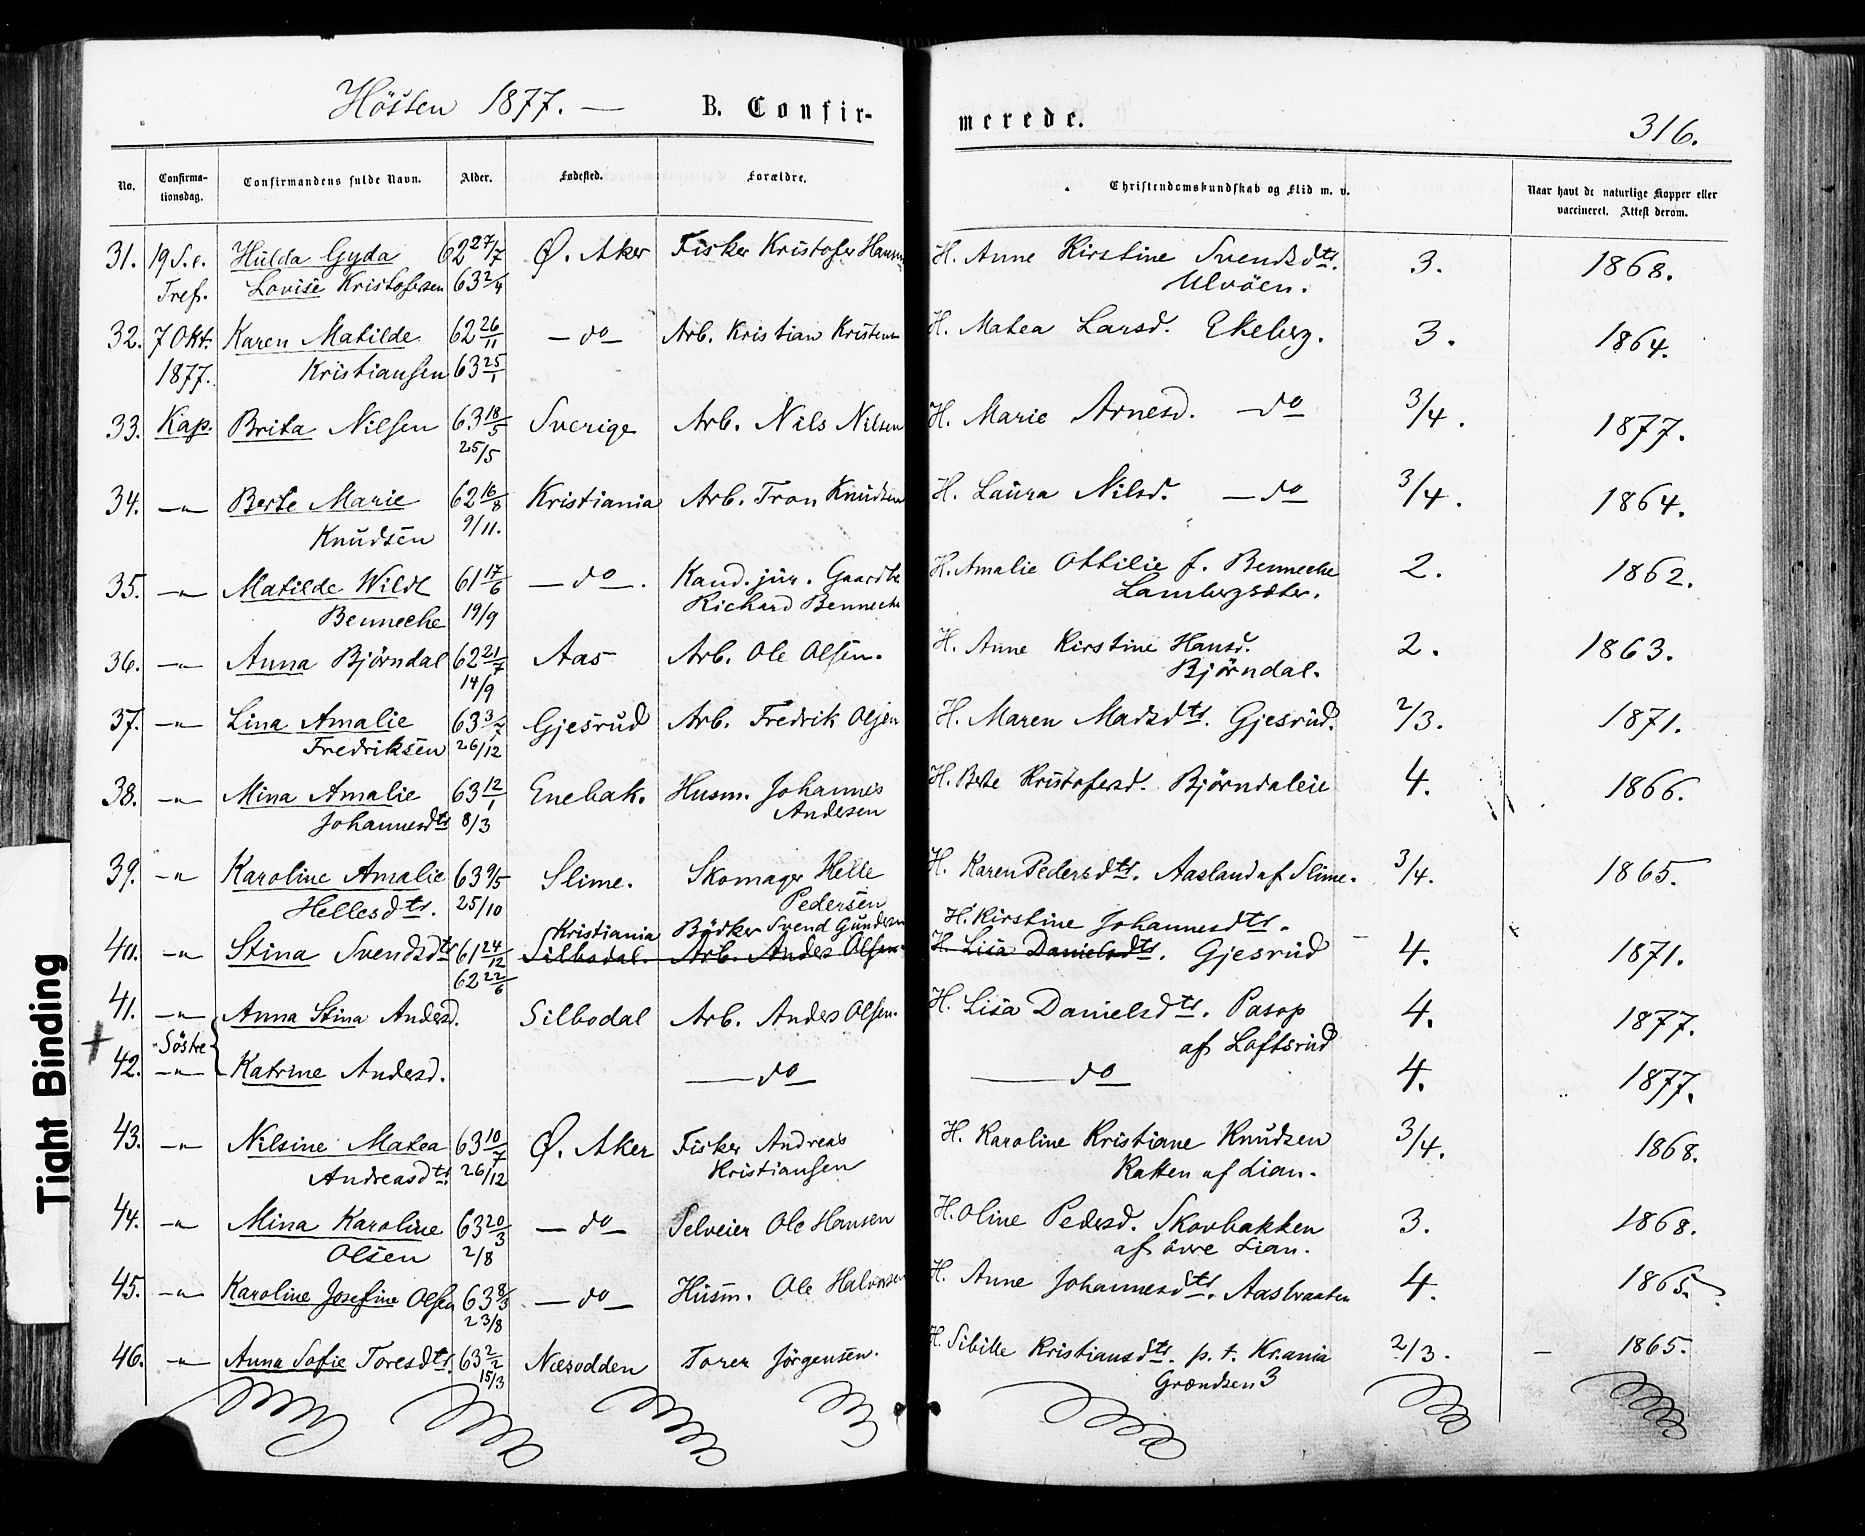 Hösten 1877. — B. Confirmerede. 316.
No. Confirma-tionsdag. Confirmandens fulde Navn. Alder. Fødested. Forældre. Christendomskundskab og Flid m. v. Naar havt de naturlige Kopper eller vaccineret. Attest derom.
31. 19 S.e. Hulda Gyda 62 27/7 Ø. Aker Fisker Kristofer Hansen H. Anne Kirstine Svendsdtr. 3. 1868.
Tref. Lovise Kristofersen 63 2/4 Ulvöen.
32. 7 Okt. Karen Matilde 62 26/11 — do — Arb. Kristian Kristens H. Matea Larsd. Ekeberg. 3. 1864.
1877. Kristiansen 63 25/1
33. Kap. Brita Nilsen 63 18/5 Sverige Arb. Nils Nilsen H. Marie Arnesd. — do 3/4. 1877.
25/5
34. —"— Berte Marie 62 16/8 Kristiania Arb. Tron Knudsen H. Laura Nilsd. — do 3/4. 1864.
Knudsen 9/11.
35. —"— Matilde Wildt 61 17/6 — do —. Kand. jur. Gaardbr H. Amalie Ottilie f. Benneche 2. 1862.
Benneche 19/9 Richard Benneche Lambergsdter.
36. —"— Anna Björndal 62 21/7 Aas Arb. Ole Olsen. H. Anne Kirstine Hansd. 2. 1863.
14/9 Björndal.
37. —"— Lina Amalie 63 3/7 Gjesrud Arb. Fredrik Olsen H. Maren Madsdtr. Gjesrud. 2/3. 1871.
Fredriksen 26/12
38. —"— Mina Amalie 63 12/1 Enebak. Husm. Johannes H. Berte Kristofersd. Björndaleie 4. 1866.
Johannesdtr 8/3 Andersen
39. —"— Karoline Amalie 63 9/5 Slime. Skomager Helle H. Karen Pedersdtr. Aasland af Slime. 3/4. 1865.
Hellesdtr. 25/10 Pedersen
Kristiania Bödker Svend Gundersen H. Kirstine Johannesdtr.
40. —"— Stina Svendsdtr 61 24/12 Silbodal. Arb. Andes Olsen. H. Lisa Danielsdtr. Gjesrud 4. 1871.
62 22/6
41. —"— Anna Stina Andersd. Silbodal Arb. Andes Olsen. H. Lisa Danielsdtr. Pasop 4. 1877.
Söstre af Loftsrud
42. —"— Katrine Andersd. — do — — do — 4. 1877.
43. —"— Nilsine Matea 63 10/7 Ø. Aker Fisker Andreas H. Karoline Kristiane Knudsen 3/4. 1868.
Andreasdtr. 26/12 Kristiansen Ratten af Lian.
44. —"— Mina Karoline 63 20/3 — do — Selveier Ole Hansen H. Oline Pedersd. Skovbakken 3. 1868.
Olsen 2/8 af övre Lian.
45. —"— Karoline Josefine Olsen 63 8/3 — do — Husm. Ole Halvorsen H. Anne Johannesdtr. Aasbraaten 4. 1865.
23/8
46. —"— Anna Sofie Toresdtr. 63 2/2 Næsodden Torer Jörgensen. H. Sibille Kristiansdtr. p. t. Kr.ania 2/3. — 1865.
15/3 Grændsen 3
Tight Binding